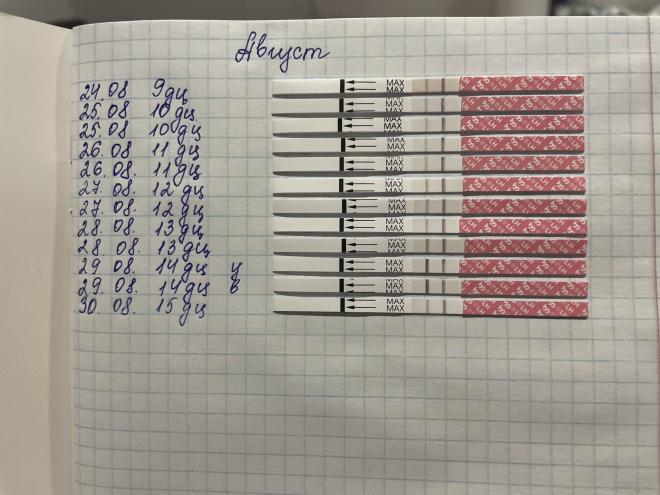 Август
24.08 9дц
25.08 10 дц
25.08 10дц
26.08 11 дц
26.08 11дц
27.08 12 дц
27.08. 12 дц
28.08 13дц
28 08. 13дц
29 08. 14дц у
29 08. 14дц в
30. 08. 15 дц
MAX
MAX
MAX
MAX
MAX
MAX
MAX
MAX
MAX
MAX
MAX
MAX
MAX
MAX